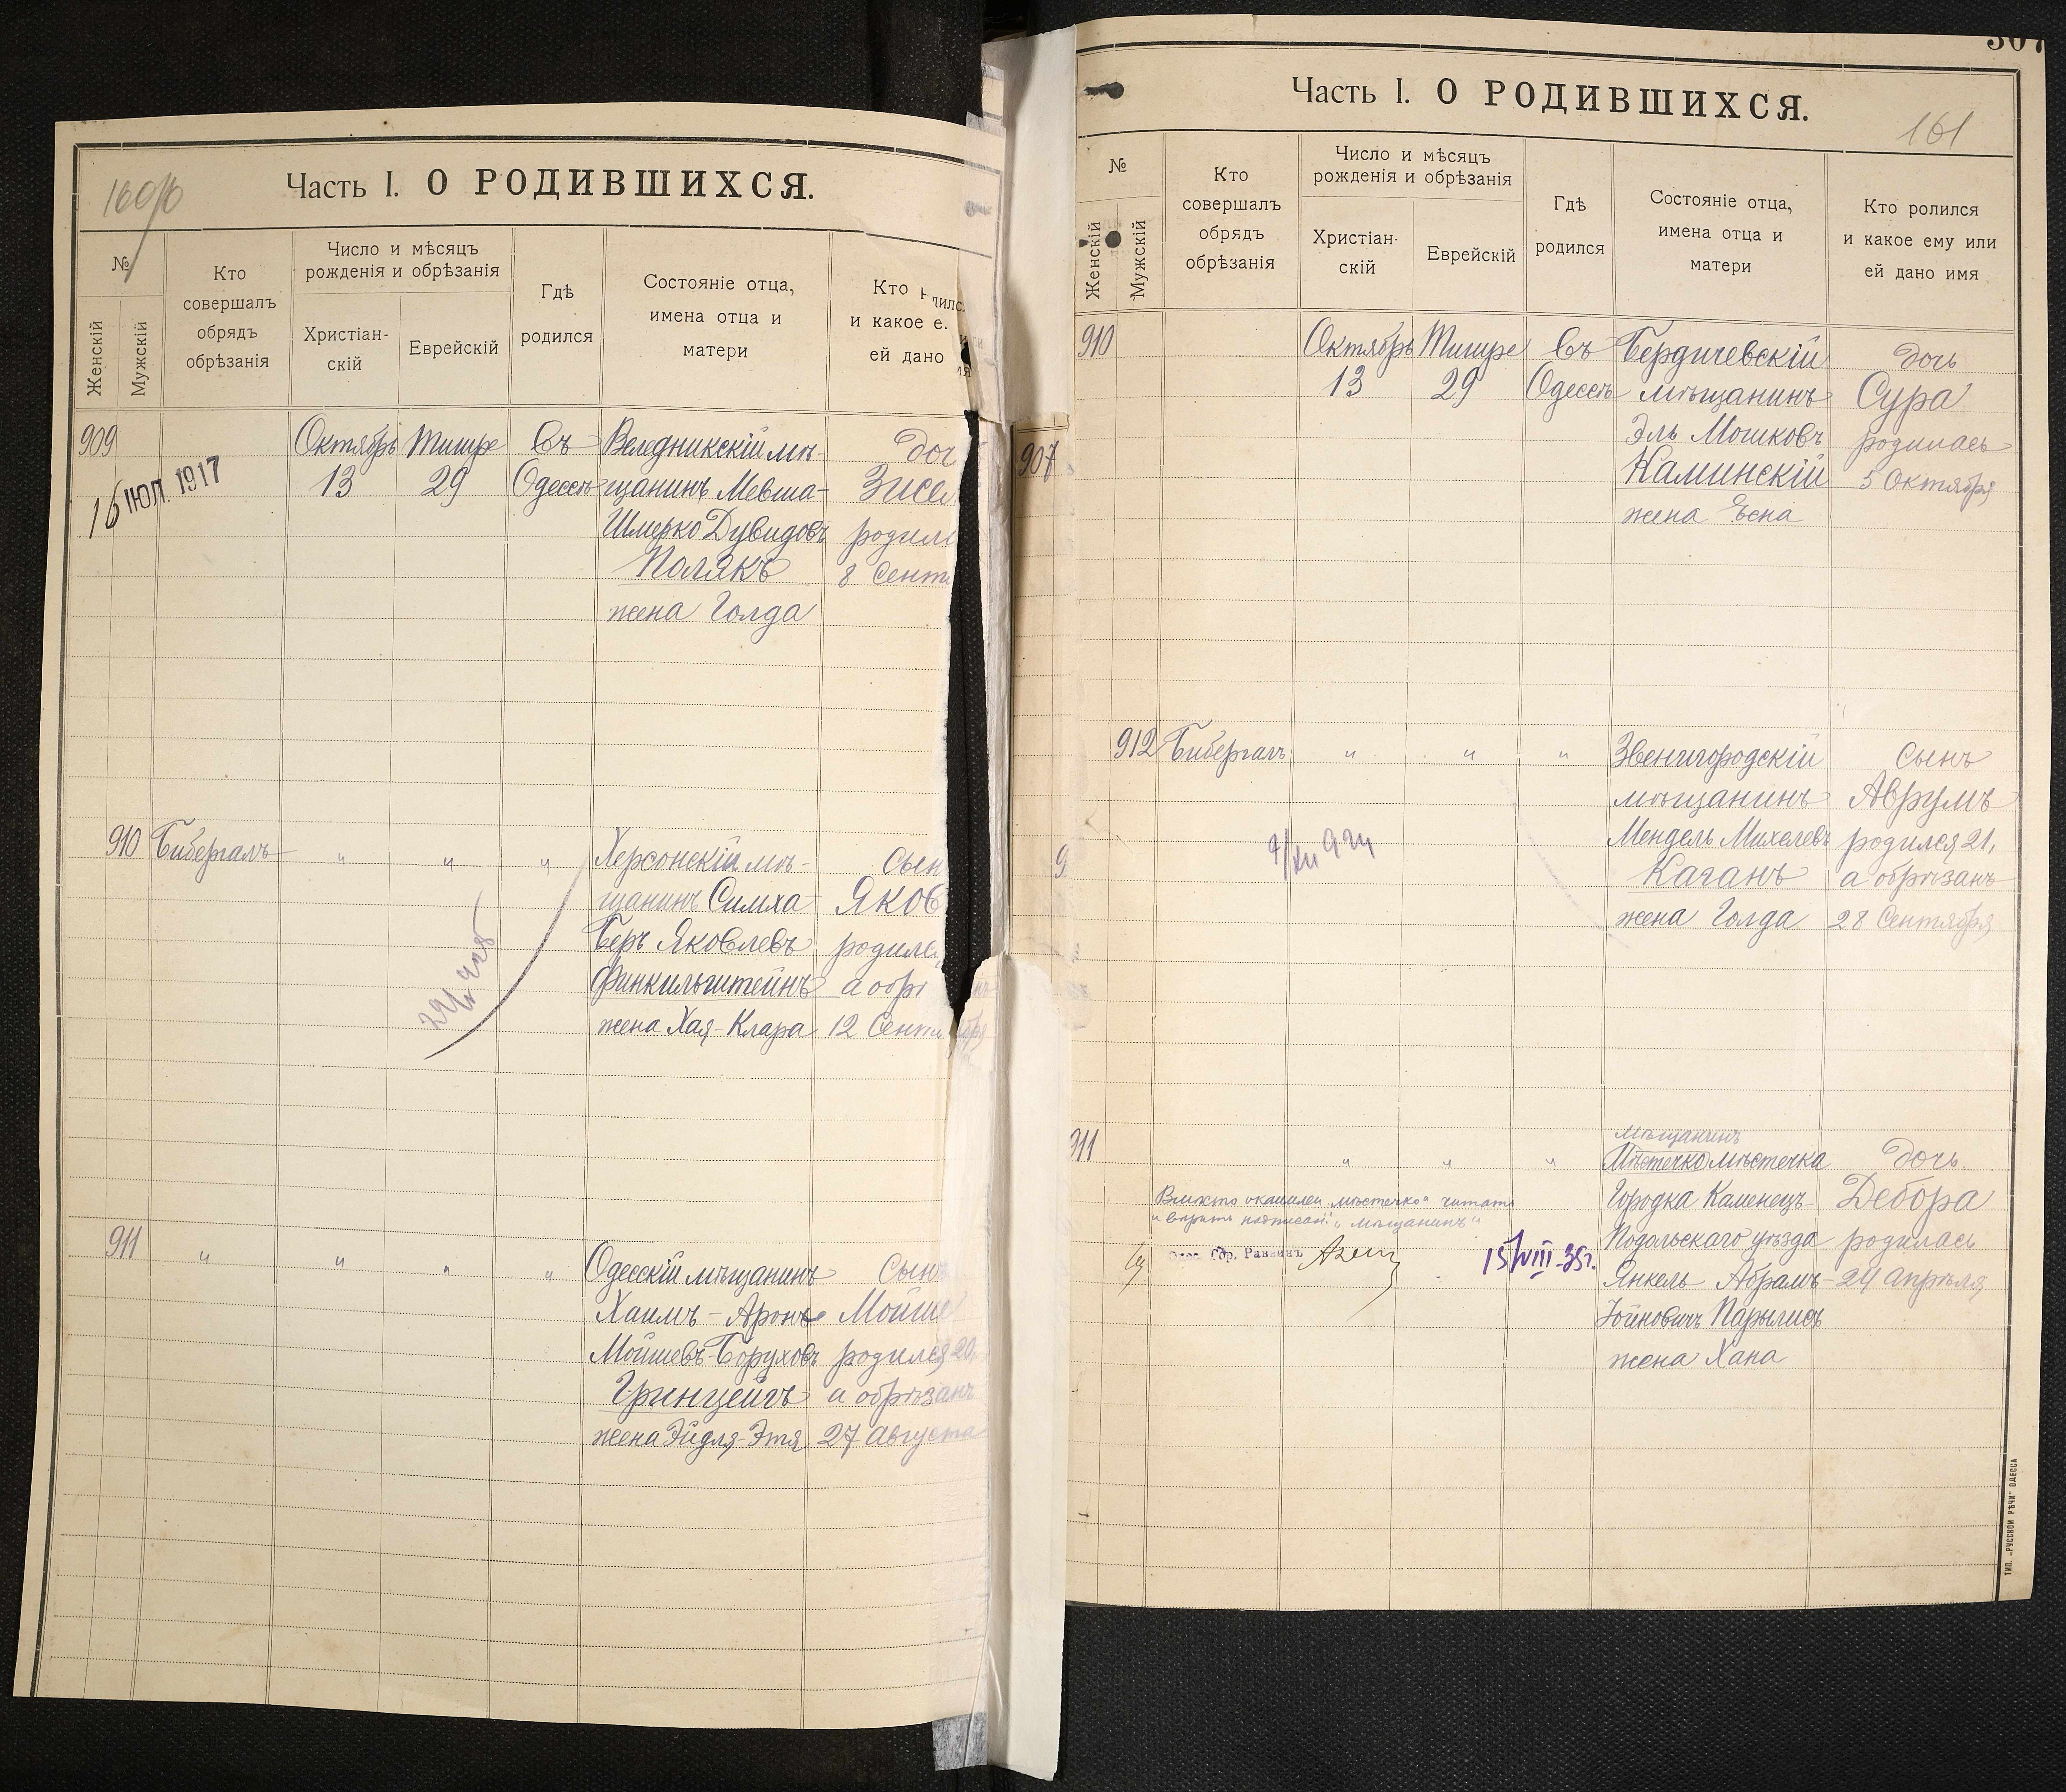 160
Часть I. О РОДИВШИХСЯ.
№
Женскій
Мужскій
Кто
совершалъ
обрядъ
обрѣзанія
Число и мѣсяцъ
рожденія и обрѣзанія
Христіан-
скій
Еврейскій
Гдѣ
родился
Состояніе отца,
имена отца и
матери
Кто
и какое е.
ей дано
909
Октябрь Тишре Въ
13 29 Одессѣ
16 ІЮЛ. 1917
Веледникскій мѣ-
щанинъ Мевша-
Шмерко Дувидовъ
Полякъ
жена Голда
доч
Зисе
родил
8 Сент
910 Бибергалъ " " "
Херсонскій мѣ-
щанинъ Симха
Беръ Яковлевъ
Финкильштейнъ
жена Хая-Клара
сын
Яков
родил
а обр
12 Сент
911 " " " "
Одесскій мѣщанинъ
Хаимъ-Аронъ
Мойшевъ-Боруховъ
Гринцейгъ
жена Эйдля-Этя
Сынъ
Мойше
родился 20,
а обрѣзанъ
27 Августа
307
Часть I. О РОДИВШИХСЯ.
161
№
Женскій
Мужскій
Кто
совершалъ
обрядъ
обрѣзанія
Число и мѣсяцъ
рожденія и обрѣзанія
Христіан-
скій
Еврейскій
Гдѣ
родился
Состояніе отца,
имена отца и
матери
Кто ролился
и какое ему или
ей дано имя
907
9
910
Октябрь Тишре Въ
13 29 Одессѣ
Бердичевскій
мѣщанинъ
Эль Мошковъ
Каминскій
жена Ѣсна
дочь
Сура
родилась
5 Октября
912 Бибергалъ " " "
Звенигородскій
мѣщанинъ
Мендель Михелевъ
Каганъ
жена Голда
сынъ
Аврумъ
родился 21,
а обрѣзанъ
28 Сентября
911 " " "
мѣщанинъ
Мѣстечко мѣстечка
Городка Каменецъ-
Подольскаго уѣзда
Янкель Абрамъ
Іойновичъ Парылисъ
жена Хана
дочь
Дебора
родилась
24 Апрѣля
Вмѣсто "мѣстечко" читать
"мѣщанинъ"
Одес. Гор. Раввинъ
15/VIII-35г.
ТИП. „РУССКОЙ РѢЧИ" ОДЕССА